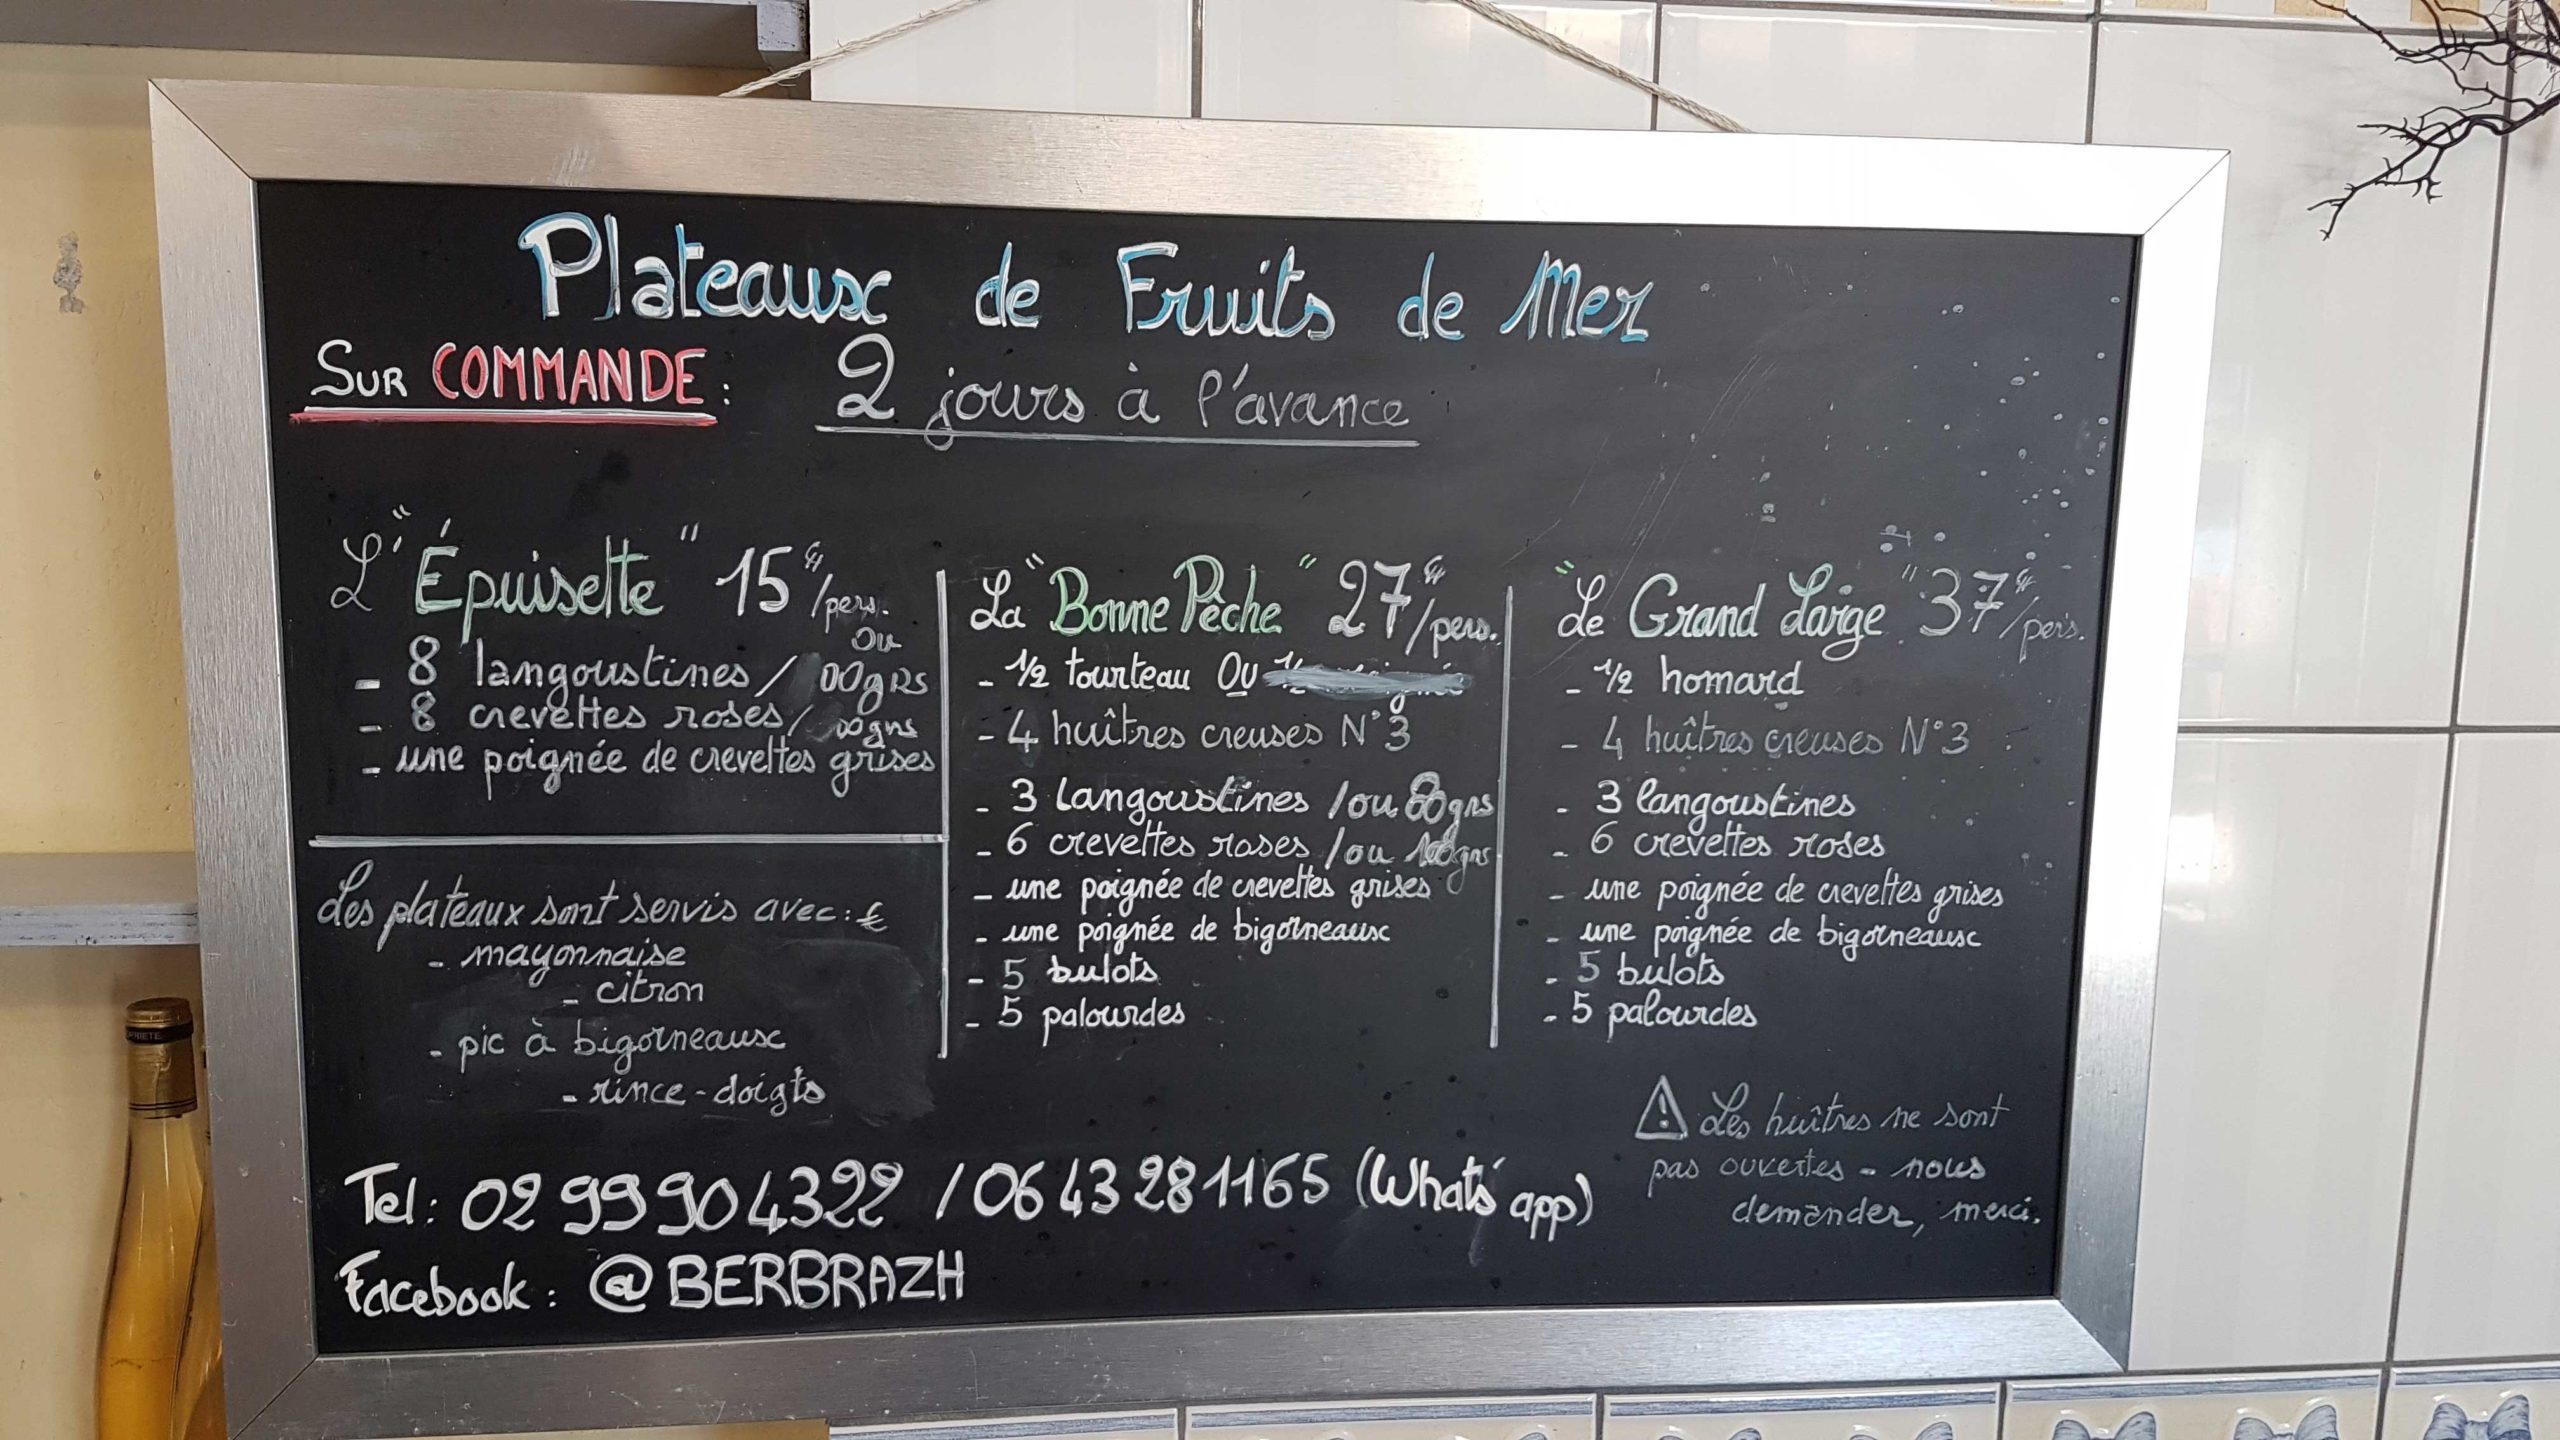 Plateaux de Fruits de Mer
SUR COMMANDE : 2 jours à l'avance
L'"Épuisette" 15€/pers.
- 8 langoustines / ou 00grs
- 8 crevettes roses / 00grs
- une poignée de crevettes grises
Les plateaux sont servis avec :
- mayonnaise
- citron
- pic à bigorneaux
- rince-doigts
La "Bonne Pêche" 27€/pers.
- 1/2 tourteau OU
- 4 huîtres creuses N°3
- 3 langoustines / ou 80grs
- 6 crevettes roses / ou 100grs
- une poignée de crevettes grises
- une poignée de bigorneaux
- 5 bulots
- 5 palourdes
"Le Grand Large" 37€/pers.
- 1/2 homard
- 4 huîtres creuses N°3
- 3 langoustines
- 6 crevettes roses
- une poignée de crevettes grises
- une poignée de bigorneaux
- 5 bulots
- 5 palourdes
⚠ Les huîtres ne sont
pas ouvertes - nous
demander, merci.
Tel : 02 99 90 43 22 / 06 43 28 11 65 (What's app)
Facebook : @BERBRAZH